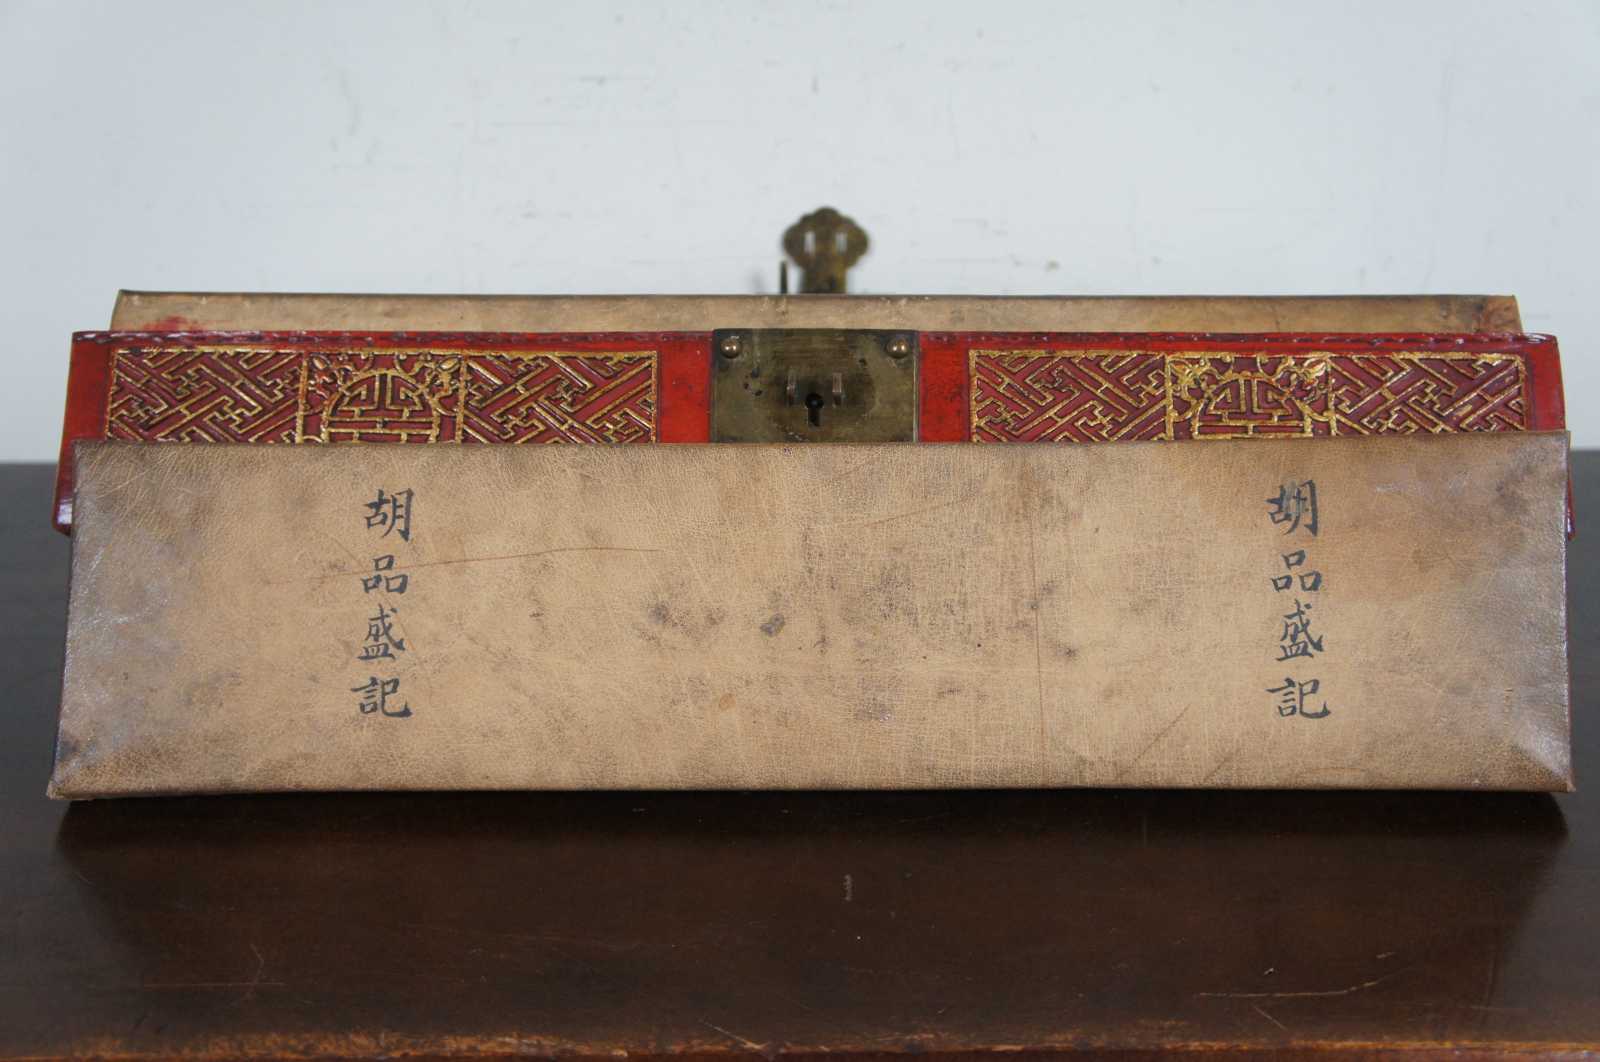 胡品盛記
胡品盛記